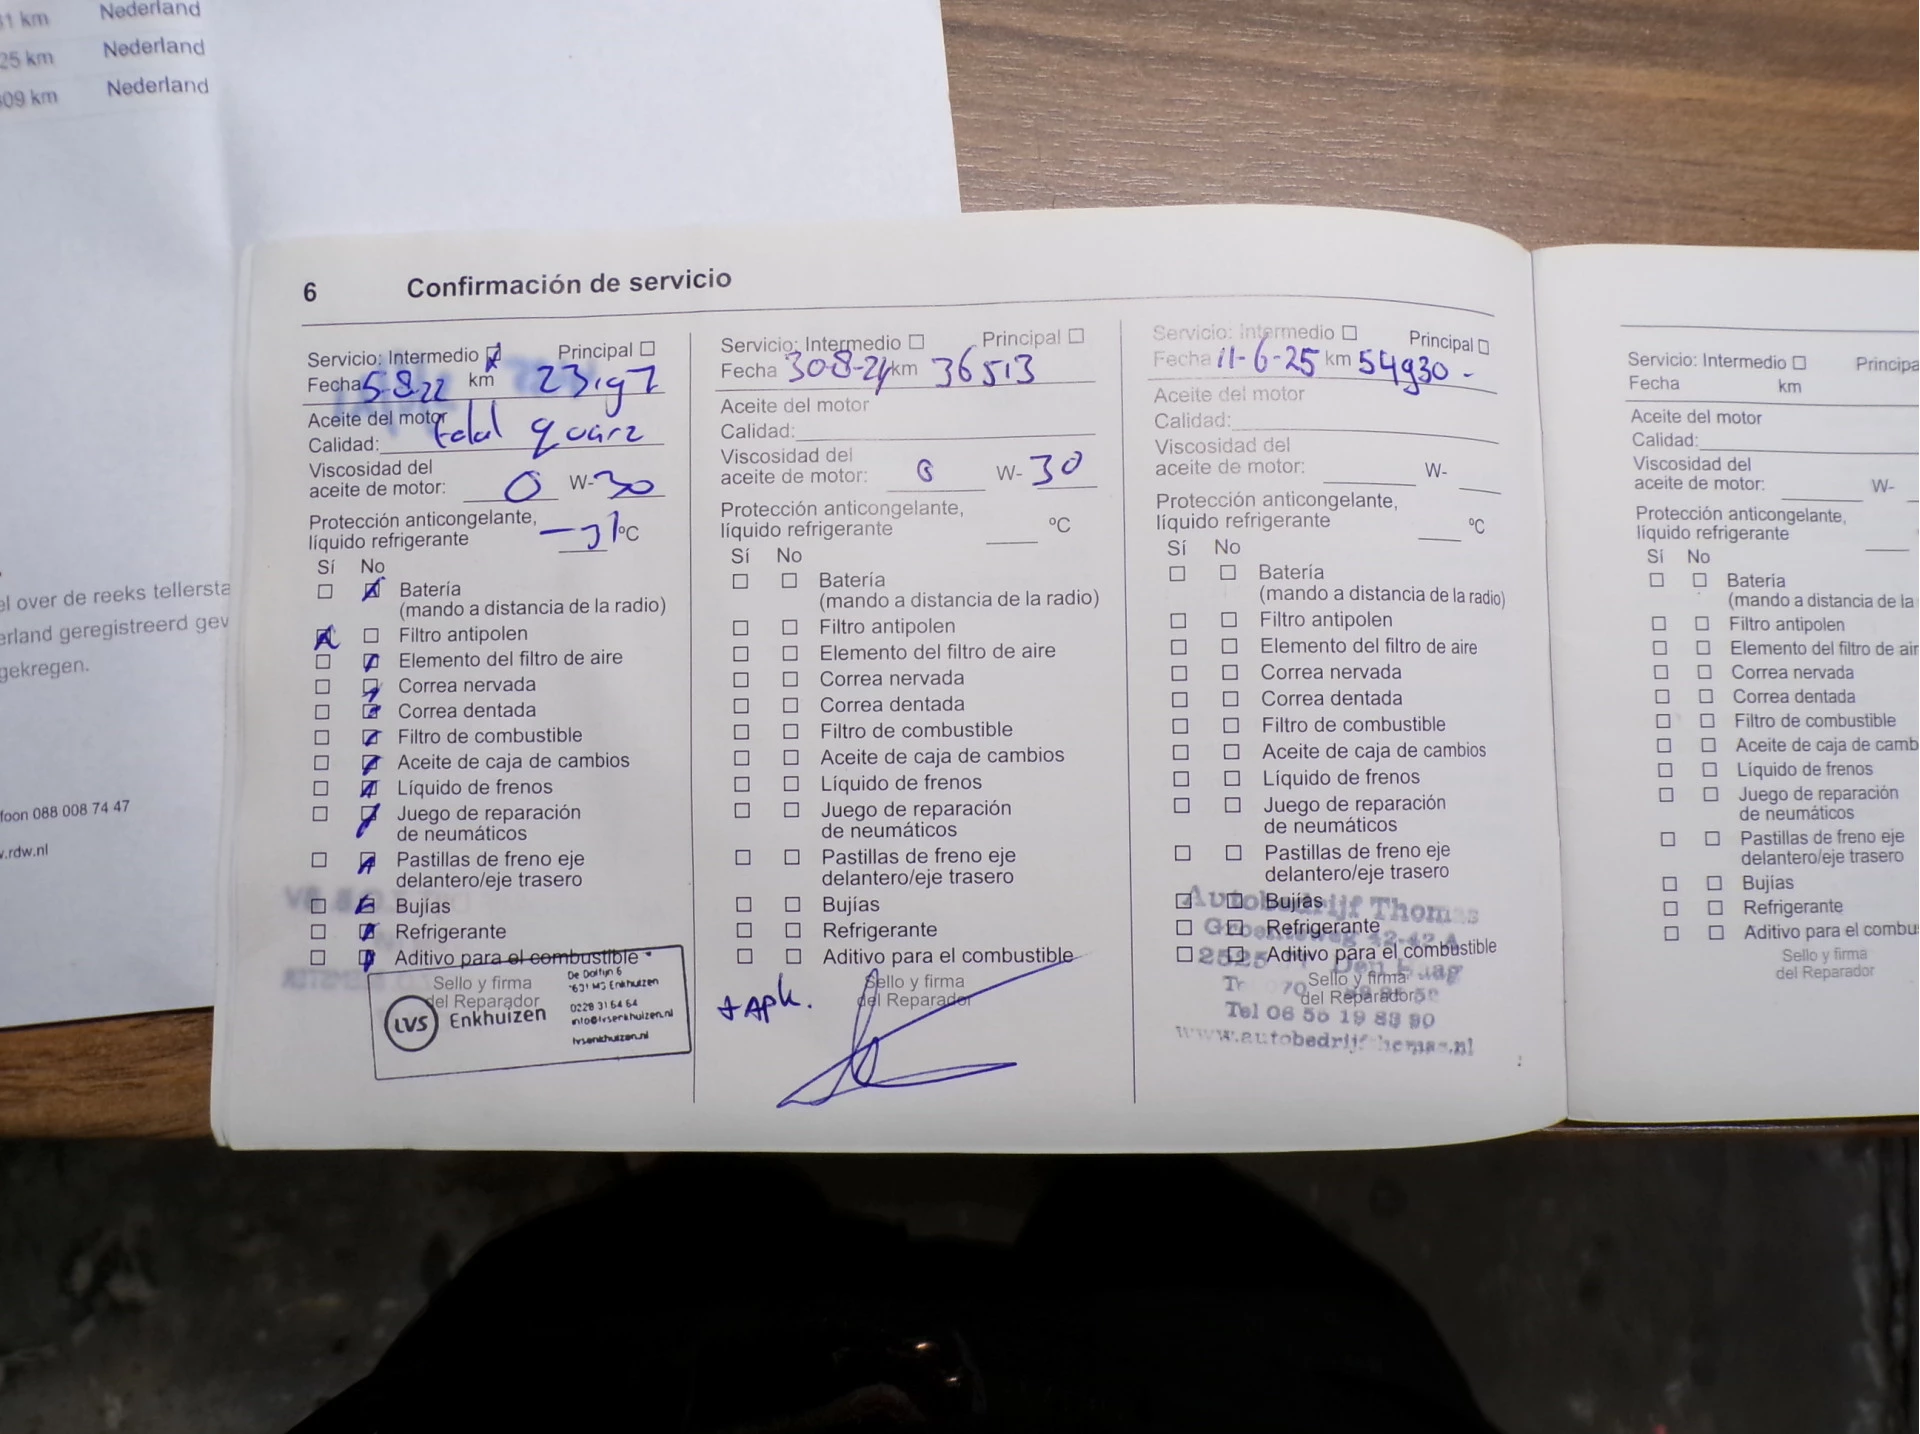 31 km Nederland
25 km Nederland
09 km Nederland
el over de reeks tellersta
erland geregistreerd gev
gekregen.
foon 088 008 74 47
.rdw.nl
6 Confirmación de servicio
Servicio: Intermedio Principal
Fecha 5-8-22 km
Aceite del motor
Calidad: total quarz
Viscosidad del
aceite de motor: 0 W-30
Protección anticongelante,
líquido refrigerante -31 ºC
Sí No
Batería
(mando a distancia de la radio)
Filtro antipolen
Elemento del filtro de aire
Correa nervada
Correa dentada
Filtro de combustible
Aceite de caja de cambios
Líquido de frenos
Juego de reparación
de neumáticos
Pastillas de freno eje
delantero/eje trasero
Bujías
Refrigerante
Aditivo para el combustible
Sello y firma
del Reparador
LVS Enkhuizen
De Dolfijn 6
Enkhuizen
0228 31 64 64
info@lvsenkhuizen.nl
lvsenkhuizen.nl
Servicio: Intermedio Principal
Fecha 30-8-24 km 36513
Aceite del motor
Calidad:
Viscosidad del
aceite de motor: 0 W-30
Protección anticongelante,
líquido refrigerante ºC
Sí No
Batería
(mando a distancia de la radio)
Filtro antipolen
Elemento del filtro de aire
Correa nervada
Correa dentada
Filtro de combustible
Aceite de caja de cambios
Líquido de frenos
Juego de reparación
de neumáticos
Pastillas de freno eje
delantero/eje trasero
Bujías
Refrigerante
Aditivo para el combustible
Sello y firma
del Reparador
+ Apk.
Servicio: Intermedio Principal
Fecha 11-6-25 km 54930 -
Aceite del motor
Calidad:
Viscosidad del
aceite de motor: W-
Protección anticongelante,
líquido refrigerante ºC
Sí No
Batería
(mando a distancia de la radio)
Filtro antipolen
Elemento del filtro de aire
Correa nervada
Correa dentada
Filtro de combustible
Aceite de caja de cambios
Líquido de frenos
Juego de reparación
de neumáticos
Pastillas de freno eje
delantero/eje trasero
Bujías
Refrigerante
Aditivo para el combustible
Sello y firma
del Reparador
Autobedrijf Thomas
42-42 A
2525 Den Haag
Tel 06
www.autobedrijfthomas.nl
Servicio: Intermedio Principa
Fecha km
Aceite del motor
Calidad:
Viscosidad del
aceite de motor: W-
Protección anticongelante,
líquido refrigerante
Sí No
Batería
(mando a distancia de la
Filtro antipolen
Elemento del filtro de air
Correa nervada
Correa dentada
Filtro de combustible
Aceite de caja de camb
Líquido de frenos
Juego de reparación
de neumáticos
Pastillas de freno eje
delantero/eje trasero
Bujías
Refrigerante
Aditivo para el combu
Sello y firma
del Reparador